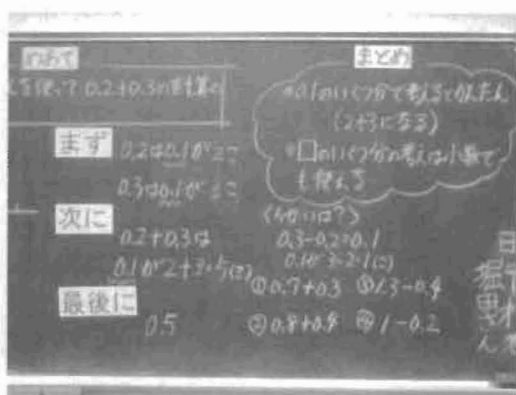 めあて
を使って0.2+0.3の計算の
まず
0.2は0.1が2こ
0.3は0.1が3こ
次に
0.2+0.3は
0.1が2+3=5(こ)
最後に
0.5
まとめ
0.1のいくつ分で考えるとかんたん
(2+3になる)
□のいくつ分の考えは小数で
も使える
(ちがいは?)
0.3-0.2=0.1
0.1が3-2=1(こ)
①0.7+0.3 ③1.3-0.4
②0.8+0.4 ④1-0.2
日